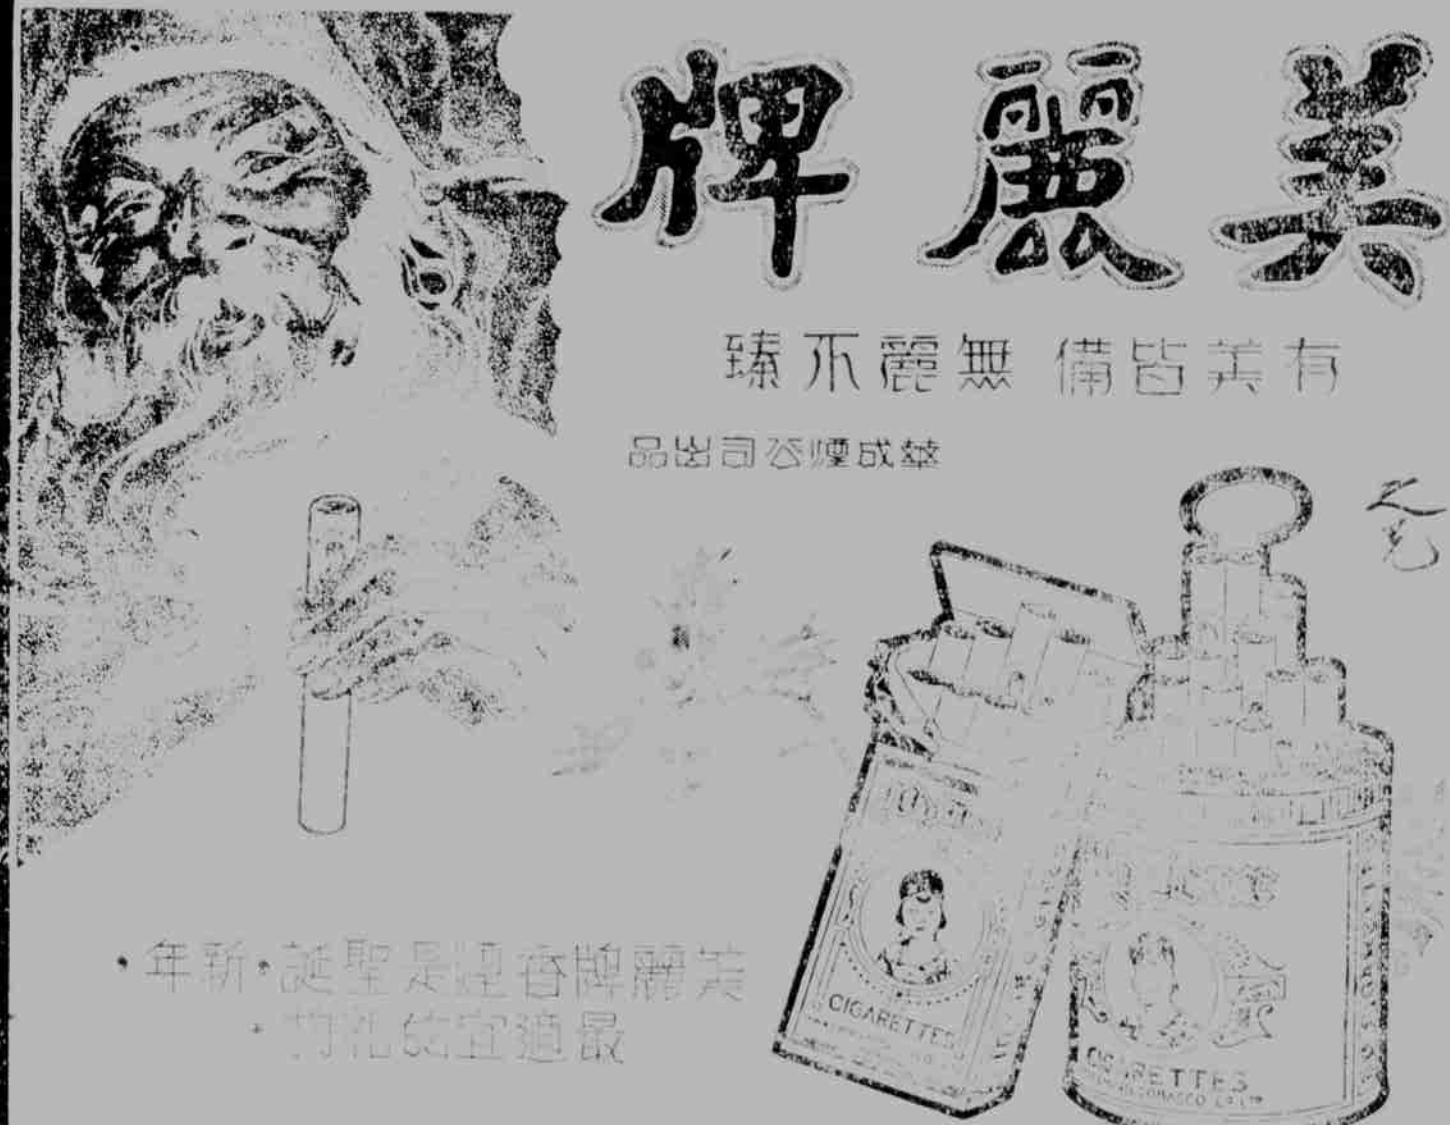 美麗牌
有美皆備 無麗不臻
華成煙公司出品
美麗牌香煙是聖誕·新年·
最適宜的禮物·
CIGARETTES
CIGARETTES
TOBACCO CO LTD